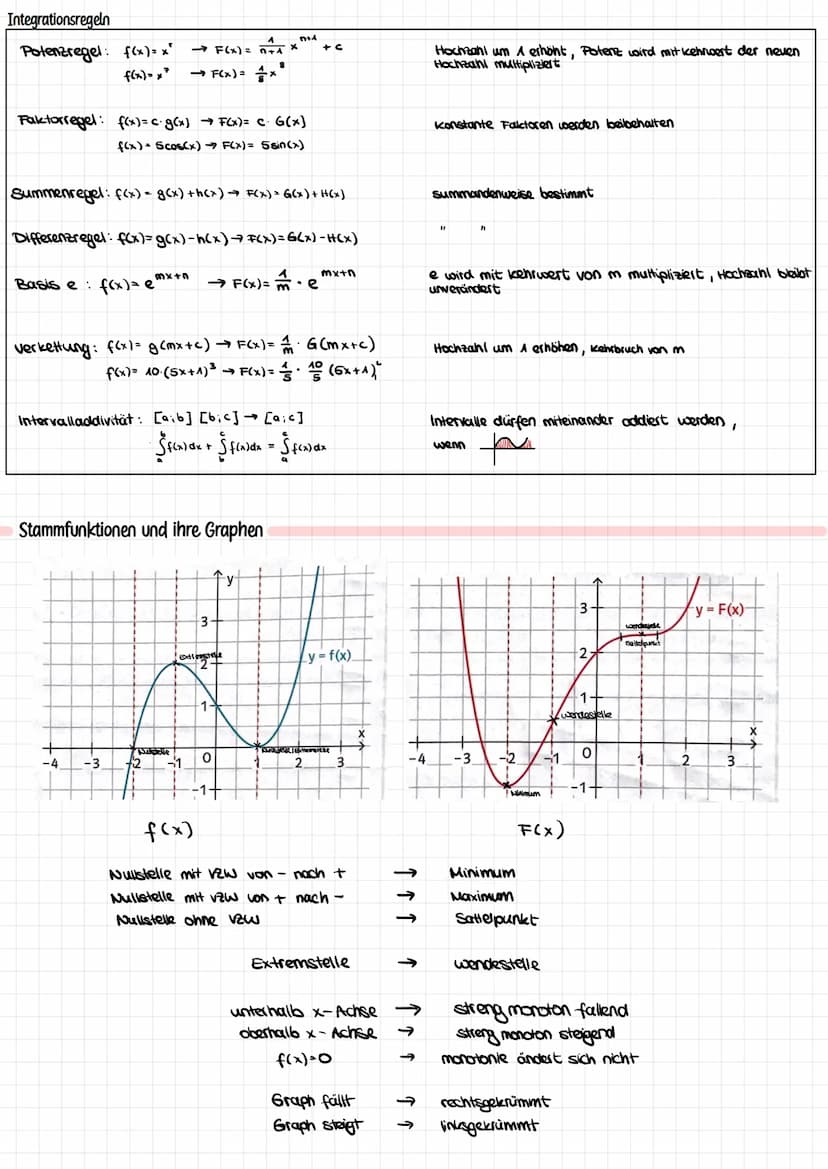 Integrationsregeln
Potenzregel: f(x)= xⁿ → F(x)= 1/n+1 x^n+1 + c
Hochzahl um 1 erhöht, Potenz wird mit Kehrwert der neuen
Hochzahl multipliziert
f(x)= x⁷ → F(x)= 1/8 x⁸
Faktorregel: f(x)= c·g(x) → F(x)= c·G(x)
Konstante Faktoren werden beibehalten
f(x)= 5cos(x) → F(x)= 5sin(x)
Summenregel: f(x) = g(x)+h(x) → F(x)= G(x)+H(x)
summandenweise bestimmt
Differenzregel: f(x)= g(x)-h(x) → F(x)=G(x)-H(x)
" "
Basis e: f(x)= e^mx+n → F(x)= 1/m · e^mx+n
e wird mit Kehrwert von m multipliziert, Hochzahl bleibt
unverändert
Verkettung: f(x)= g(mx+c) → F(x)= 1/m · G(mx+c)
Hochzahl um 1 erhöhen, Kehrbruch von m
f(x)= 10·(5x+1)³ → F(x)= 1/5 · 10/5 (5x+1)²
Intervalladdivität: [a;b] [b;c] → [a;c]
Intervalle dürfen miteinander addiert werden,
wenn
∫ₐᵇf(x)dx + ∫ᵇᶜf(x)dx = ∫ₐᶜf(x)dx
Stammfunktionen und ihre Graphen
y
3
Extremstelle
2
y = f(x)
1
x
Nullstelle
-4 -3 -2 -1 0 1 2 3
-1
3
y = F(x)
Wendestelle
Sattelpunkt
2
1
Wendestelle
x
-4 -3 -2 -1 0 1 2 3
-1
Minimum
f(x) F(x)
Nullstelle mit VZW von - nach + → Minimum
Nullstelle mit VZW von + nach - → Maximum
Nullstelle ohne VZW → Sattelpunkt
Extremstelle → Wendestelle
unterhalb x-Achse → streng monoton fallend
oberhalb x-Achse → streng monoton steigend
f(x)=0 → monotonie ändert sich nicht
Graph fällt → rechtsgekrümmt
Graph steigt → linksgekrümmt